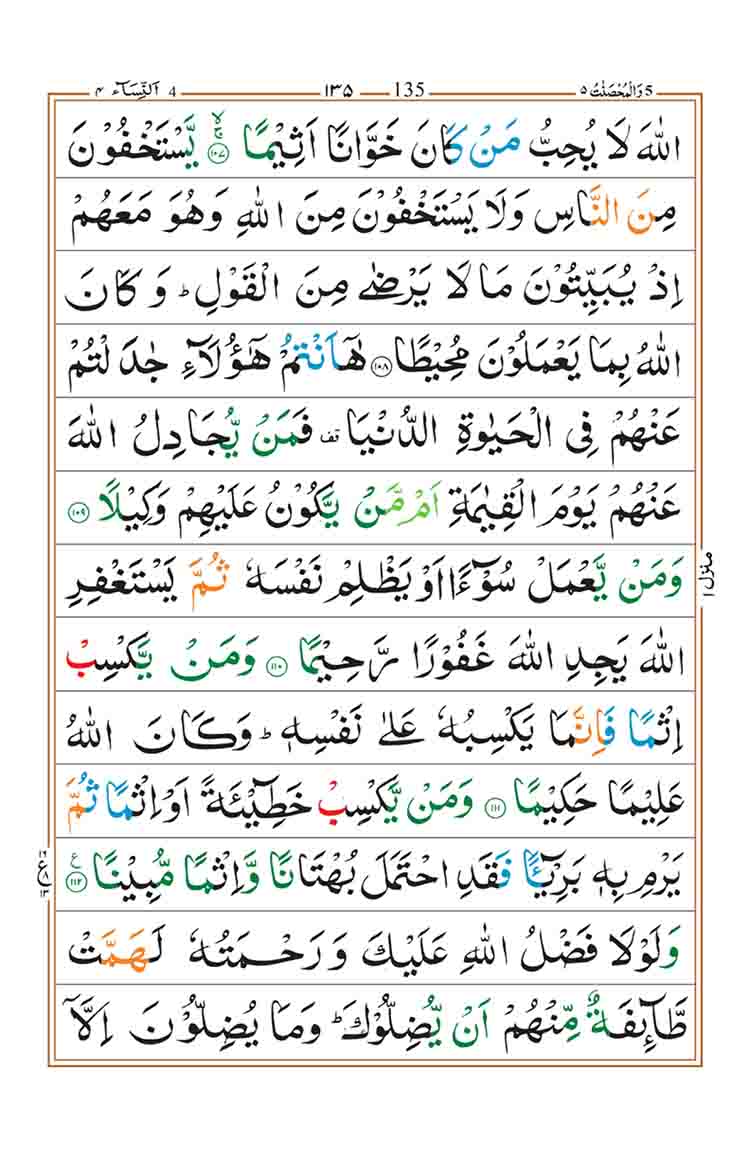 5 وَالْمُحْصَنٰتُ ٥ 135 ١٣٥ 4 اَلنِّسَآء ٤
اللّٰهَ لَا يُحِبُّ مَنْ كَانَ خَوَّانًا اَثِيْمًا ۙۚ ﴿١٠٧﴾ يَّسْتَخْفُوْنَ
مِنَ النَّاسِ وَلَا يَسْتَخْفُوْنَ مِنَ اللّٰهِ وَهُوَ مَعَهُمْ
اِذْ يُبَيِّتُوْنَ مَا لَا يَرْضٰى مِنَ الْقَوْلِ ؕ وَ كَانَ
اللّٰهُ بِمَا يَعْمَلُوْنَ مُحِيْطًا ﴿١٠٨﴾ هٰۤاَنْتُمْ هٰۤؤُلَآءِ جٰدَلْتُمْ
عَنْهُمْ فِى الْحَيٰوةِ الدُّنْيَا قف فَمَنْ يُّجَادِلُ اللّٰهَ
عَنْهُمْ يَوْمَ الْقِيٰمَةِ اَمْ مَّنْ يَّكُوْنُ عَلَيْهِمْ وَكِيْلًا ﴿١٠٩﴾
وَمَنْ يَّعْمَلْ سُوْٓءًا اَوْ يَظْلِمْ نَفْسَهٗ ثُمَّ يَسْتَغْفِرِ
اللّٰهَ يَجِدِ اللّٰهَ غَفُوْرًا رَّحِيْمًا ﴿١١٠﴾ وَمَنْ يَّكْسِبْ
اِثْمًا فَاِنَّمَا يَكْسِبُهٗ عَلٰى نَفْسِهٖ ؕ وَكَانَ اللّٰهُ
عَلِيْمًا حَكِيْمًا ﴿١١١﴾ وَمَنْ يَّكْسِبْ خَطِيْٓئَةً اَوْ اِثْمًا ثُمَّ
يَرْمِ بِهٖ بَرِيْٓئًا فَقَدِ احْتَمَلَ بُهْتَانًا وَّاِثْمًا مُّبِيْنًا ﴿١١٢﴾ ع
وَلَوْلَا فَضْلُ اللّٰهِ عَلَيْكَ وَ رَحْمَتُهٗ لَهَمَّتْ
طَّآئِفَةٌ مِّنْهُمْ اَنْ يُّضِلُّوْكَ ؕ وَمَا يُضِلُّوْنَ اِلَّاۤ
منزل ١